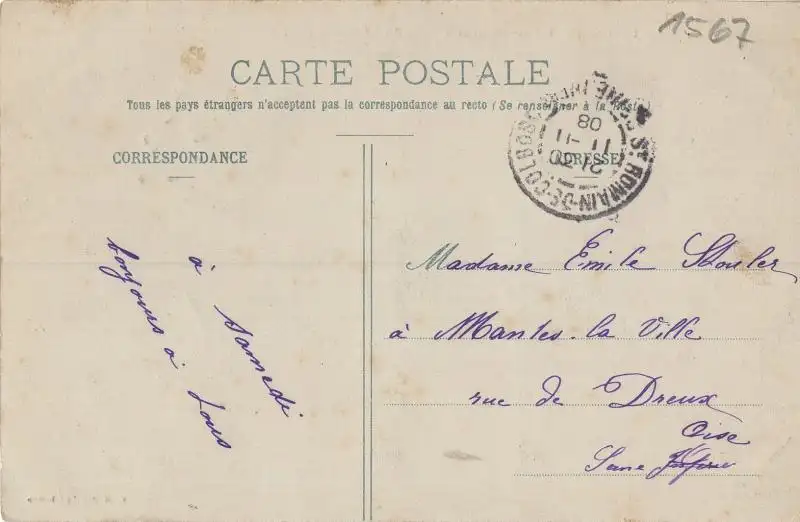 1567
CARTE POSTALE
Tous les pays étrangers n'acceptent pas la correspondance au recto (Se renseigner à la Poste)
CORRESPONDANCE
ADRESSE
ST ROMAIN-DE-COLBOSC
21 30
11 -11
08
à Samedi
bonjours à tous
Madame Emile
à Mantes-la Ville
rue de Dreux
Oise
Seine